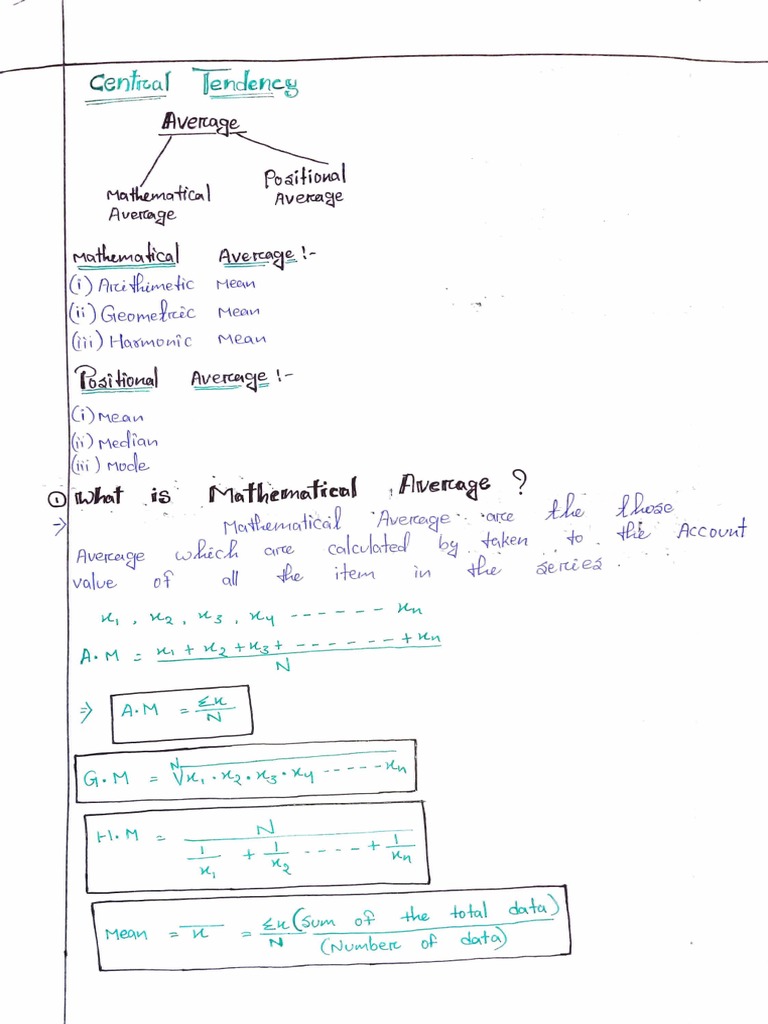 Central Tendency
Average
Mathematical Average
Positional Average
Mathematical Average :-
(i) Arithimetic Mean
(ii) Geometric Mean
(iii) Harmonic Mean
Positional Average :-
(i) Mean
(ii) Median
(iii) Mode
① What is Mathematical Average ?
⇒ Mathematical Average are the those
Average which are calculated by taken to the Account
value of all the item in the series.
x₁ , x₂ , x₃ , x₄ ------- xₙ
A.M = (x₁ + x₂ + x₃ + ------- + xₙ) / N
⇒ A.M = Σx / N
G.M = ᴺ√(x₁ . x₂ . x₃ . x₄ ----- xₙ)
H.M = N / (1/x₁ + 1/x₂ ----- + 1/xₙ)
Mean = x̄ = Σx / N (Sum of the total data) / (Number of data)